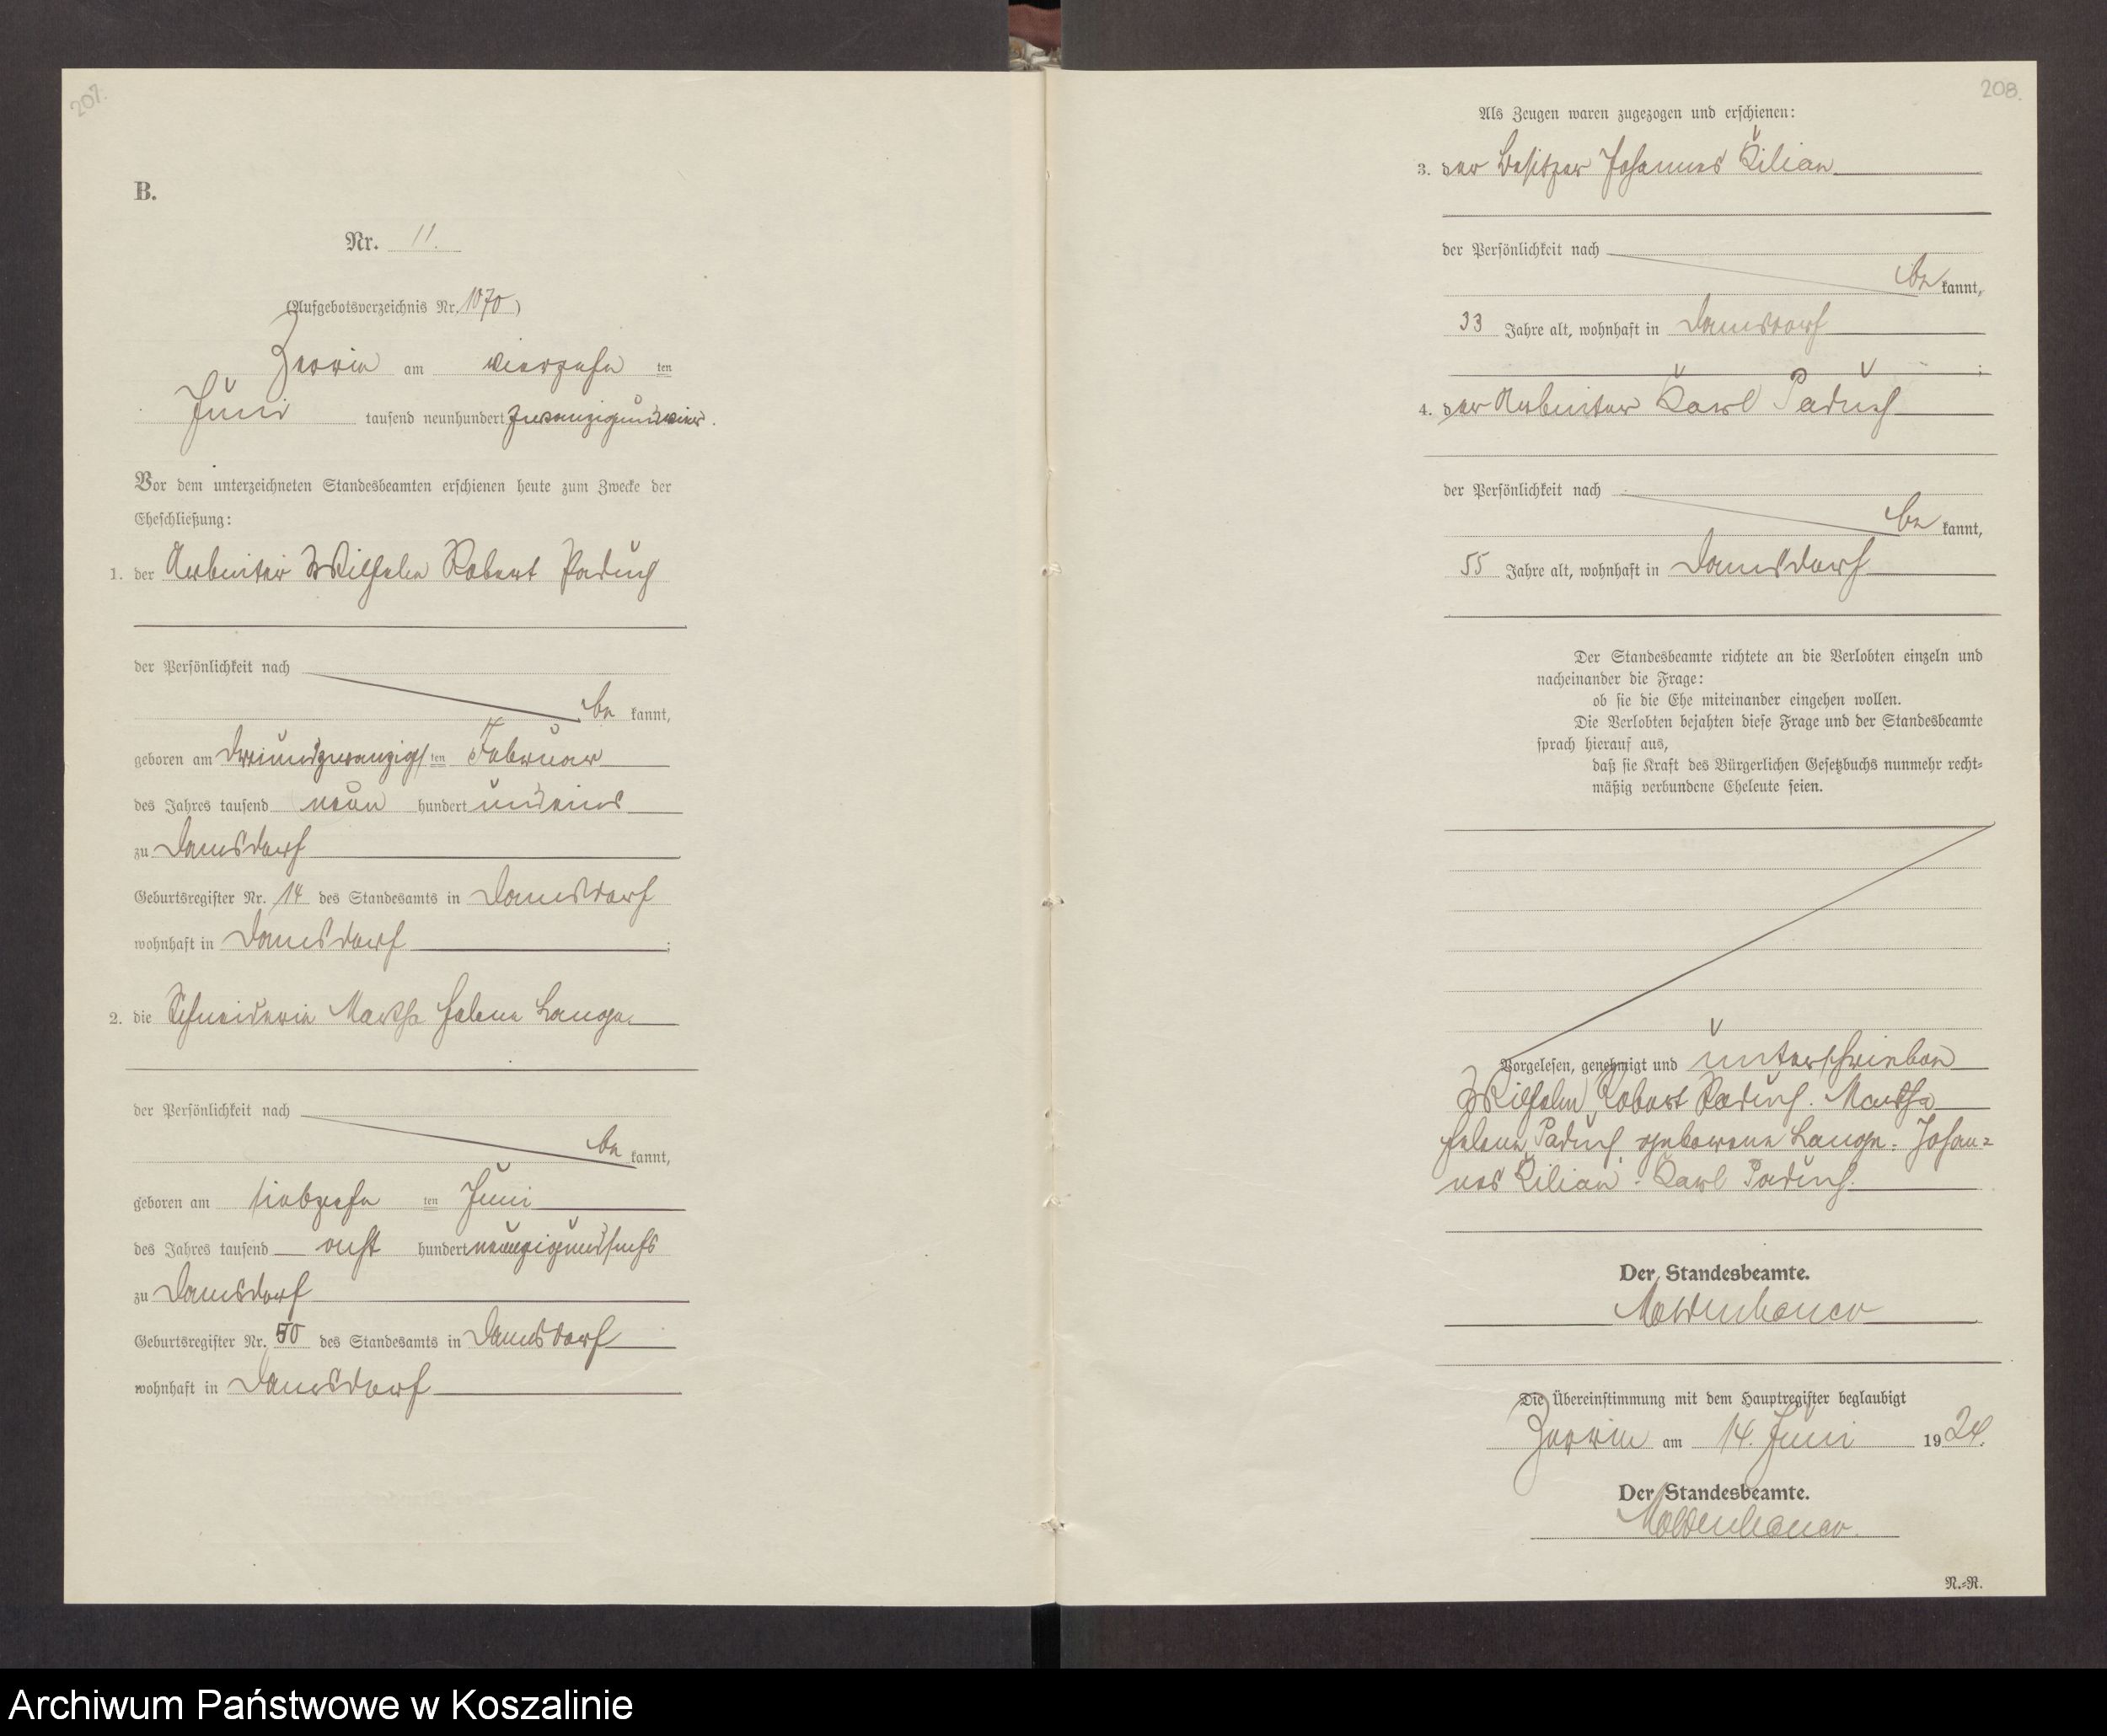 207.
B.
Nr. 11.
(Aufgebotsverzeichnis Nr. 1070)
Zerrin am vierzehn ten
Juni tausend neunhundert zwanzigundvier.
Vor dem unterzeichneten Standesbeamten erschienen heute zum Zwecke der
Eheschließung:
1. der Arbeiter Wilhelm Robert Paduch
der Persönlichkeit nach
be kannt,
geboren am dreiundzwanzigsten Februar
des Jahres tausend neun hundert undeins
zu Damsdorf
Geburtsregister Nr. 14 des Standesamts in Damsdorf
wohnhaft in Damsdorf ;
2. die Schneiderin Martha Helene Lange
der Persönlichkeit nach
be kannt,
geboren am siebzehn ten Juni
des Jahres tausend acht hundert neunzigundsechs
zu Damsdorf
Geburtsregister Nr. 50 des Standesamts in Damsdorf
wohnhaft in Damsdorf
208.
Als Zeugen waren zugezogen und erschienen:
3. der Besitzer Johannes Kilian
der Persönlichkeit nach
be kannt,
33 Jahre alt, wohnhaft in Damsdorf
;
4. der Arbeiter Karl Paduch
der Persönlichkeit nach
be kannt,
55 Jahre alt, wohnhaft in Damsdorf
Der Standesbeamte richtete an die Verlobten einzeln und
nacheinander die Frage:
ob sie die Ehe miteinander eingehen wollen.
Die Verlobten bejahten diese Frage und der Standesbeamte
sprach hierauf aus,
daß sie kraft des Bürgerlichen Gesetzbuchs nunmehr recht-
mäßig verbundene Eheleute seien.
Vorgelesen, genehmigt und unterschrieben
Wilhelm Robert Paduch. Martha
Helene Paduch geborene Lange. Johan-
nes Kilian. Karl Paduch.
Der Standesbeamte.
Moldenhauer
Die Übereinstimmung mit dem Hauptregister beglaubigt
Zerrin am 14. Juni 1924.
Der Standesbeamte.
Moldenhauer.
N.-R.
Archiwum Państwowe w Koszalinie